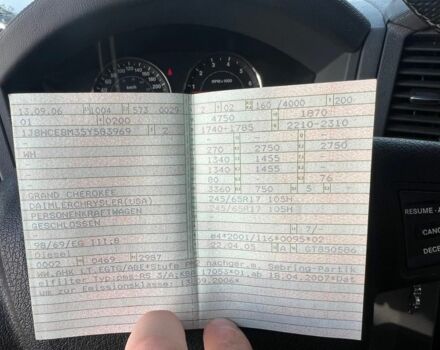 13.09.06 1004 573 0029
0200
01
1J8HCE8M35Y583969 2
-
WH
-
GRAND CHEROKEE
DAIMLERCHRYSLER(USA)
PERSONENKRAFTWAGEN
GESCHLOSSEN
-
98/69/EG III;B
Diesel
0002 0469 2987
2 02 160 /4000 200
4750 1870
1740-1785 2210-2310
- - -
270 2750 2750
1340 1455 -
1340 1455 -
80 - 76
3360 750 5 -
245/65R17 105H
245/65R17 105H
-
- 7/-
e4*2001/116*0095*02
22.04.05 GT850506
WW.AHK LT.EGTG/ABE*Stufe PM2 nachger.m. Sebring-Partik
elfilter Typ:
um zur Emissionsklasse: 13.09.2006*
RPM x 1000
RESUME
CANC
DEC